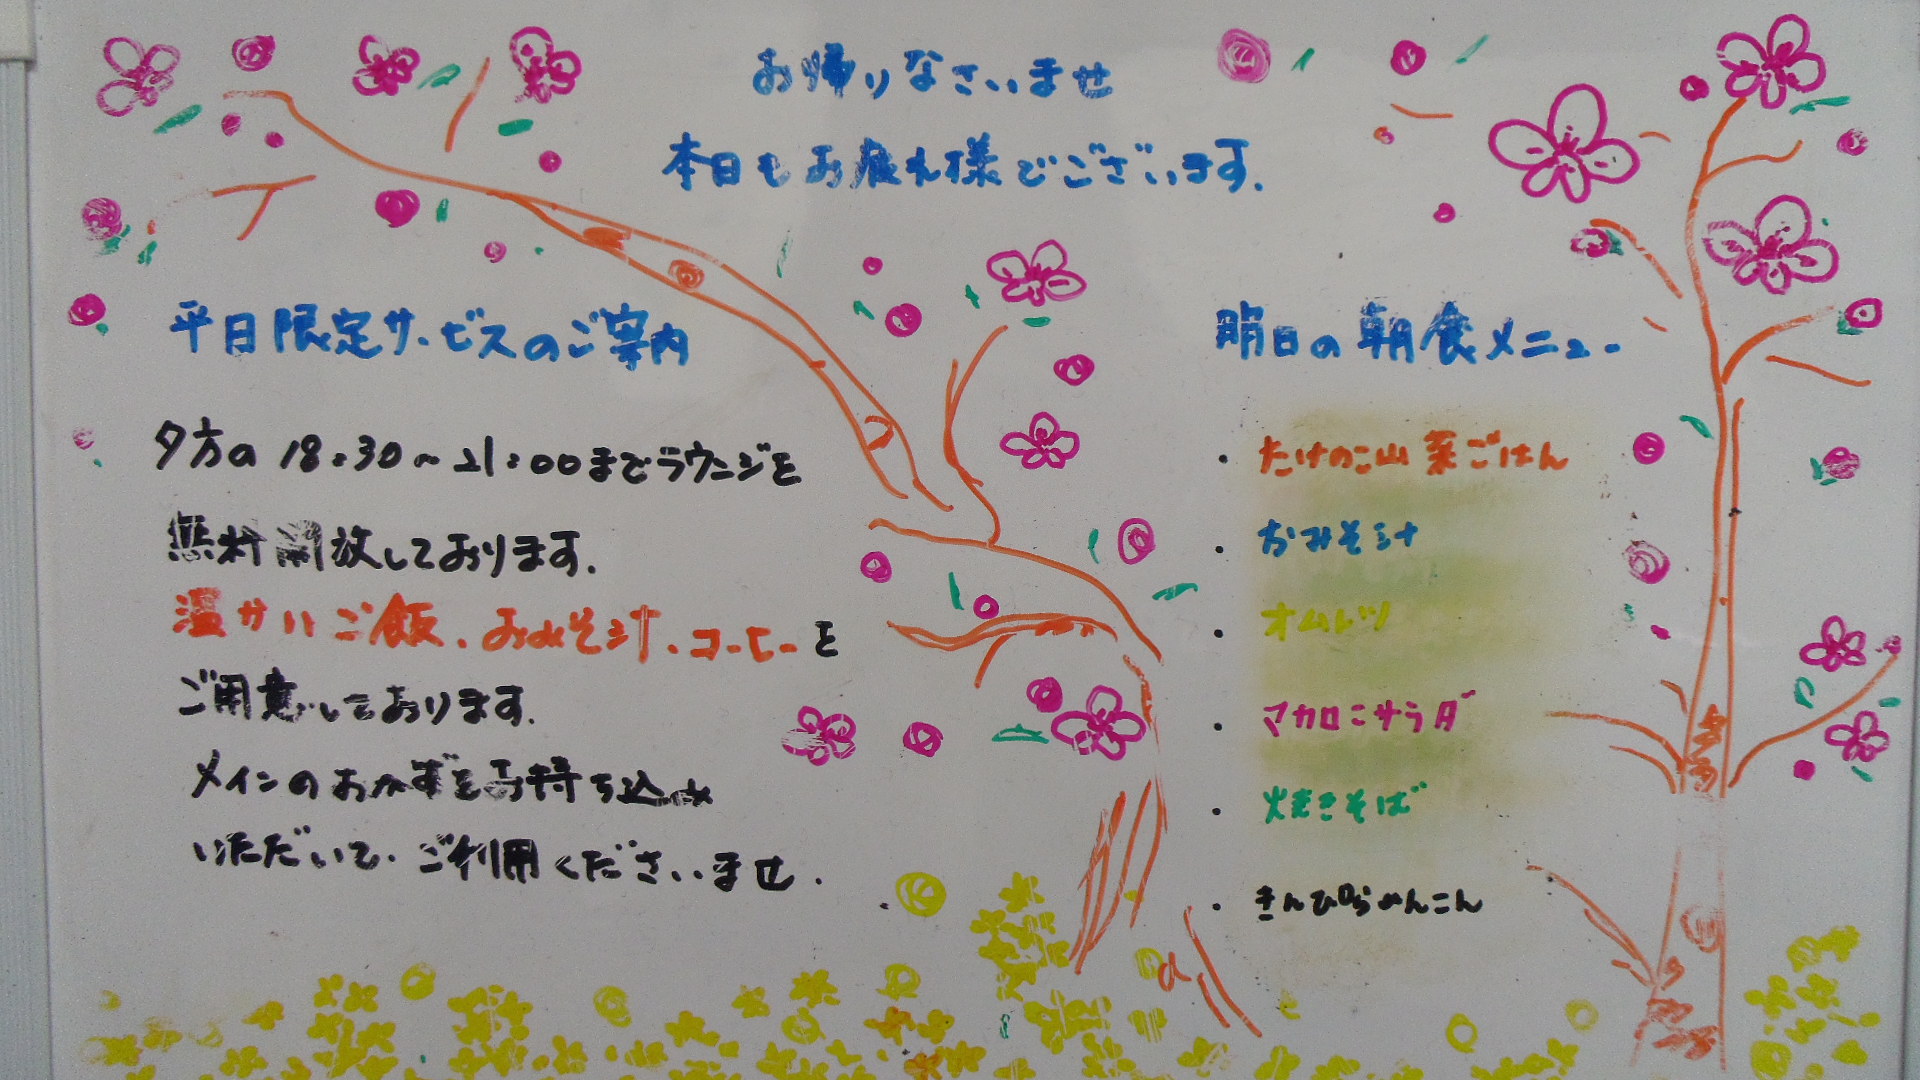 お帰りなさいませ
本日もお疲れ様でございます.
平日限定サービスのご案内
夕方の 18:30~21:00までラウンジを
無料開放しております.
温かいご飯、おみそ汁、コーヒーを
ご用意しております.
メインのおかずをお持ち込み
いただいて、ご利用くださいませ.
明日の朝食メニュー
・たけのこ山菜ごはん
・おみそ汁
・オムレツ
・マカロニサラダ
・焼きそば
・きんぴられんこん